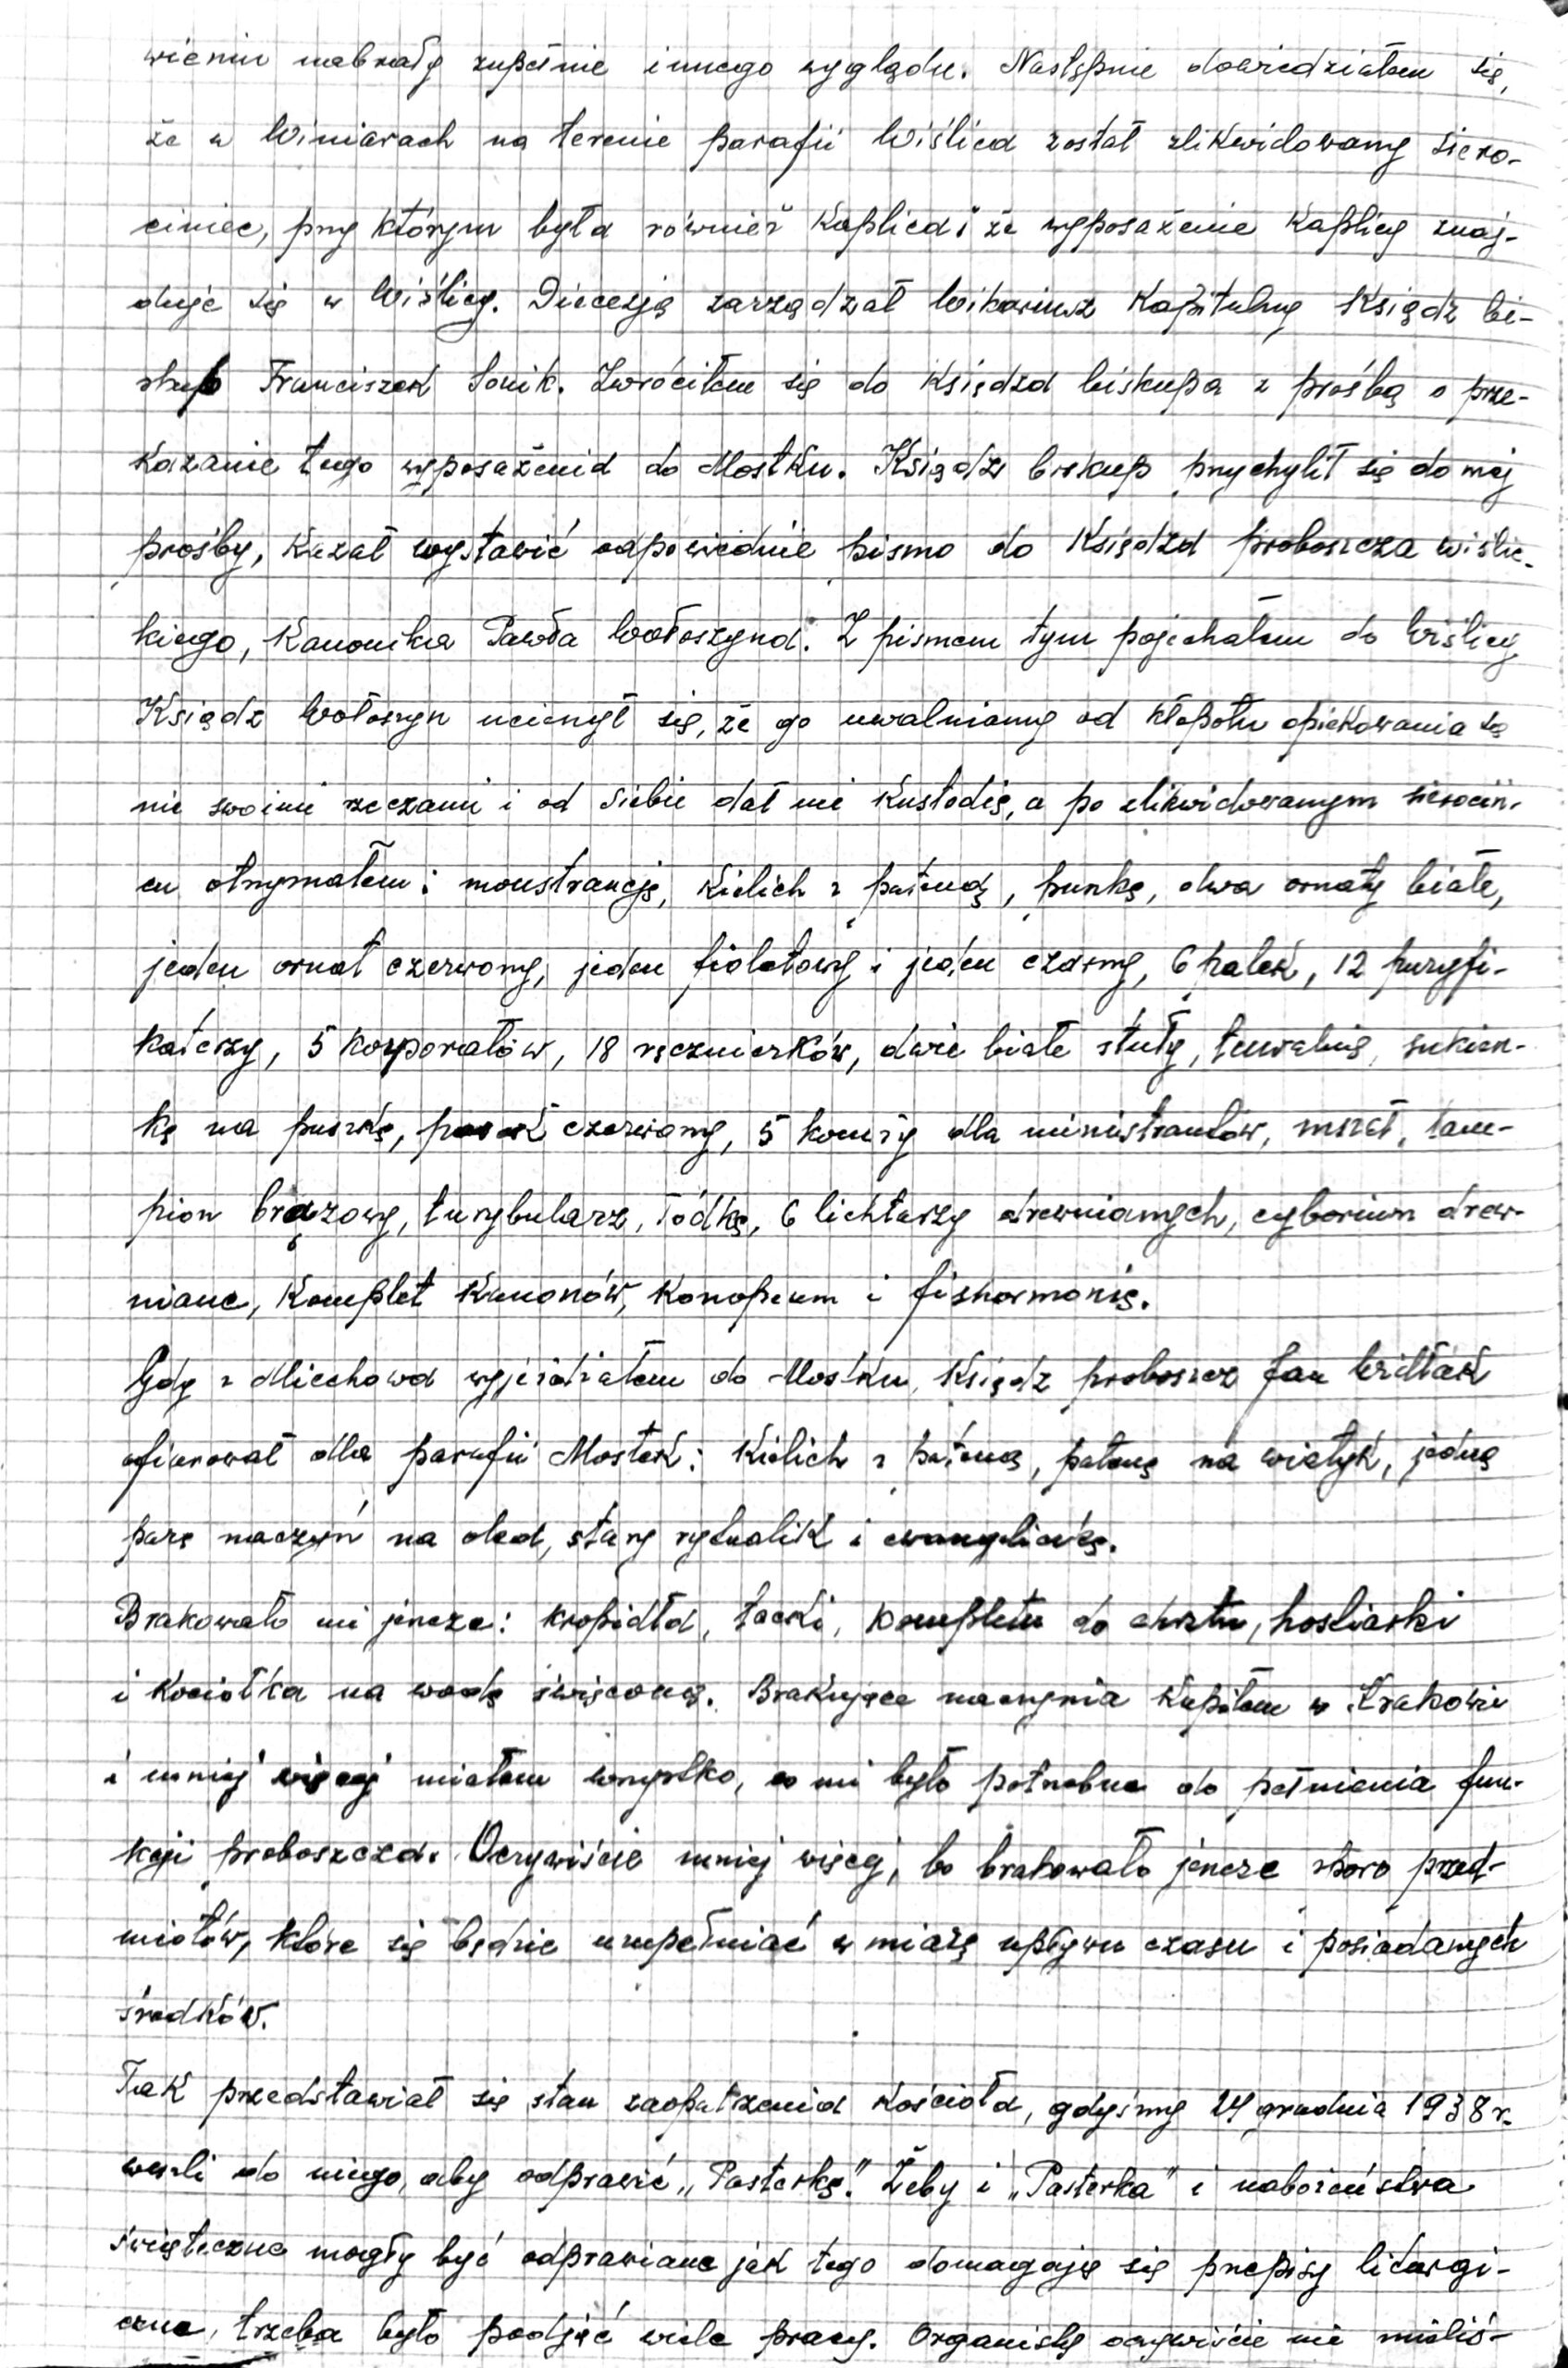 wieniu nabrały zupełnie innego wyglądu. Następnie dowiedziałem się,
że w Winiarach na terenie parafii Wiślica został zlikwidowany siero-
ciniec, przy którym była również kaplica i że wyposażenie kaplicy znaj-
duje się w Wiślicy. Diecezją zarządzał Wikariusz Kapitulny Ksiądz bi-
skup Franciszek Sonik. Zwróciłem się do Księdza biskupa z prośbą o prze-
kazanie tego wyposażenia do Mostku. Ksiądz biskup przychylił się do mej
prośby, kazał wystawić odpowiednie pismo do Księdza proboszcza wiślic-
kiego, Kanonika Pawła Wołoszyna. Z pismem tym pojechałem do Wiślicy
Ksiądz Wołoszyn ucieszył się, że go uwalniamy od kłopotu opiekowania się
nie swoimi rzeczami i od siebie dał mi kustodię, a po zlikwidowanym sierociń-
cu otrzymałem: monstrancję, kielich z pateną, puszkę, dwa ornaty białe,
jeden ornat czerwony, jeden fioletowy i jeden czarny, 6 palek, 12 puryfi-
katerzy, 5 korporałów, 18 ręczniczków, dwie białe stuły, tuwalnię, sukien-
kę na puszkę, pasek czerwony, 5 komży dla ministrantów, mszał, lam-
pion brązowy, turybularz, łódkę, 6 lichtarzy drewnianych, cyborium drew-
niane, komplet kanonów, konopeum i fisharmonię.
Gdy z Miechowa wyjeżdżałem do Mostku, Ksiądz proboszcz Jan Widłak
ofiarował dla parafii Mostek: kielich z pateną, patenę na wiatyk, jedną
parę naczyń na olea, stary rytualik i ewangeliczkę.
Brakowało mi jeszcze: kropidła, tacki, kompletu do chrztu, hostiarki
i kociołka na wodę święconą. Brakujące naczynia kupiłem w Krakowie
i mniej więcej miałem wszystko, co mi było potrzebne do pełnienia fun-
kcji proboszcza. Oczywiście mniej więcej, bo brakowało jeszcze sporo przed-
miotów, które się będzie uzupełniać w miarę upływu czasu i posiadanych
środków.
Tak przedstawiał się stan zaopatrzenia kościoła, gdyśmy 24 grudnia 1938 r.
weszli do niego, aby odprawić „Pasterkę". Żeby i „Pasterka" i nabożeństwa
świąteczne mogły być odprawiane jak tego domagają się przepisy liturgi-
czne, trzeba było podjąć wiele pracy. Organisty oczywiście nie mieliś-